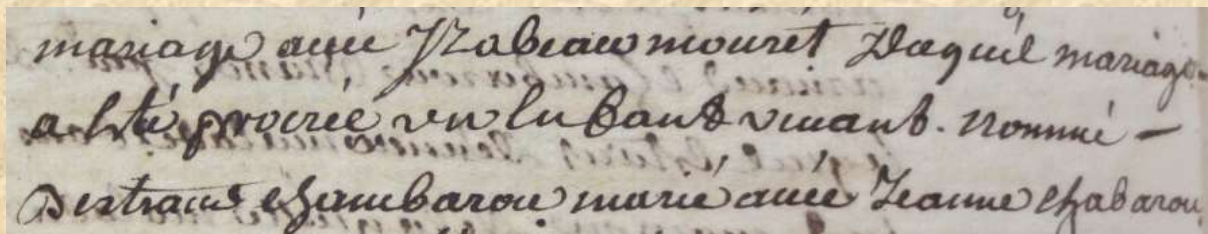 mariage avec Yzabeau mouret Duquel mariage
a esté procréé un enfant vivant. nommé -
Bertrand Chambarou marié avec Jeanne Chabarou